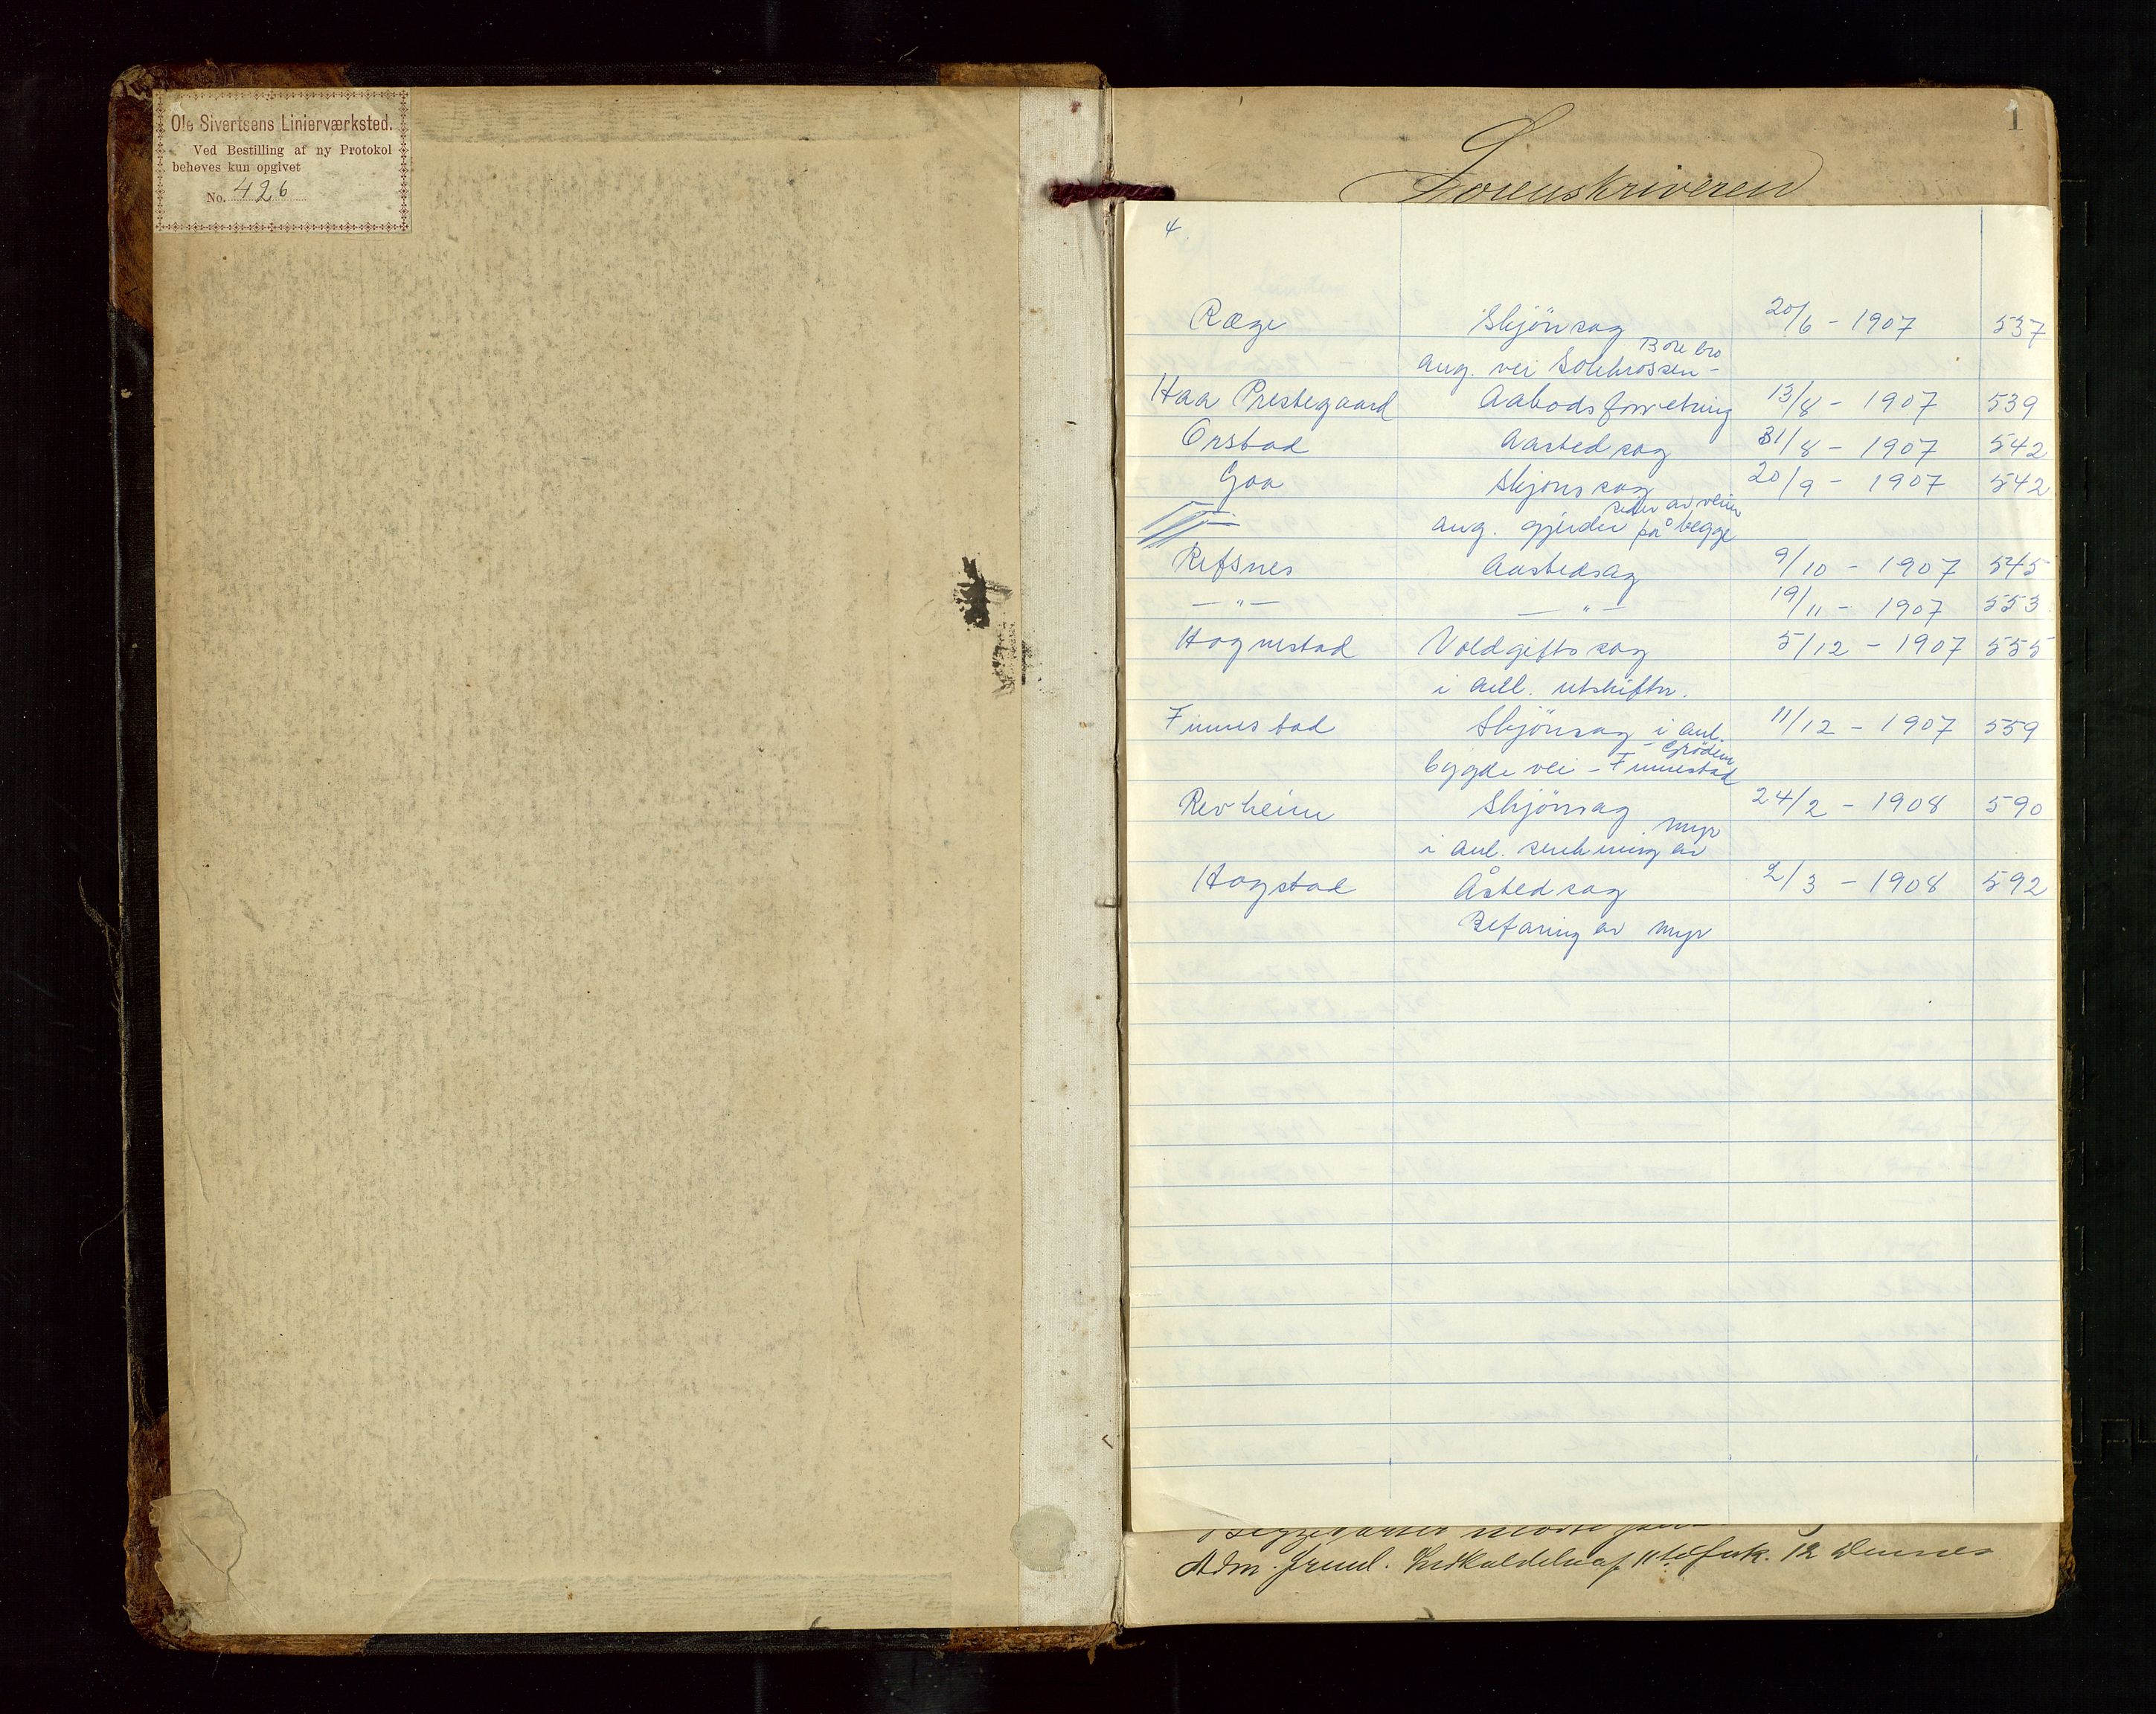 Ole Sivertsens Linierværksted.
Ved Bestilling af ny Protokol
behøves kun opgivet
No. 426
1
Sorenskriveren
4.
Ræge Skjönsag 20/6 - 1907 537
ang. vei Solekrossen - Bore bro
Haa Prestegaard Aabodsforretning 13/8 - 1907 539
Orstad Aasted sag 31/8 - 1907 542
Goa Skjons sag 20/9 - 1907 542
ang. gjerder på begge sider av veien
Refsnes Aastedsag 9/10 - 1907 545
— " — — " — 19/11 - 1907 553
Hognestad Voldgifts sag 5/12 - 1907 555
i anl. utskiftn.
Finnestad Skjönsag i anl. 11/12 - 1907 559
bygde vei - Finnestad - Gröden
Revheim Skjönsag 24/2 - 1908 590
i anl. senkning av myr
Hogstad Åsted sag 2/3 - 1908 592
Befaring av myr
Adm. freml. 12 Dennes